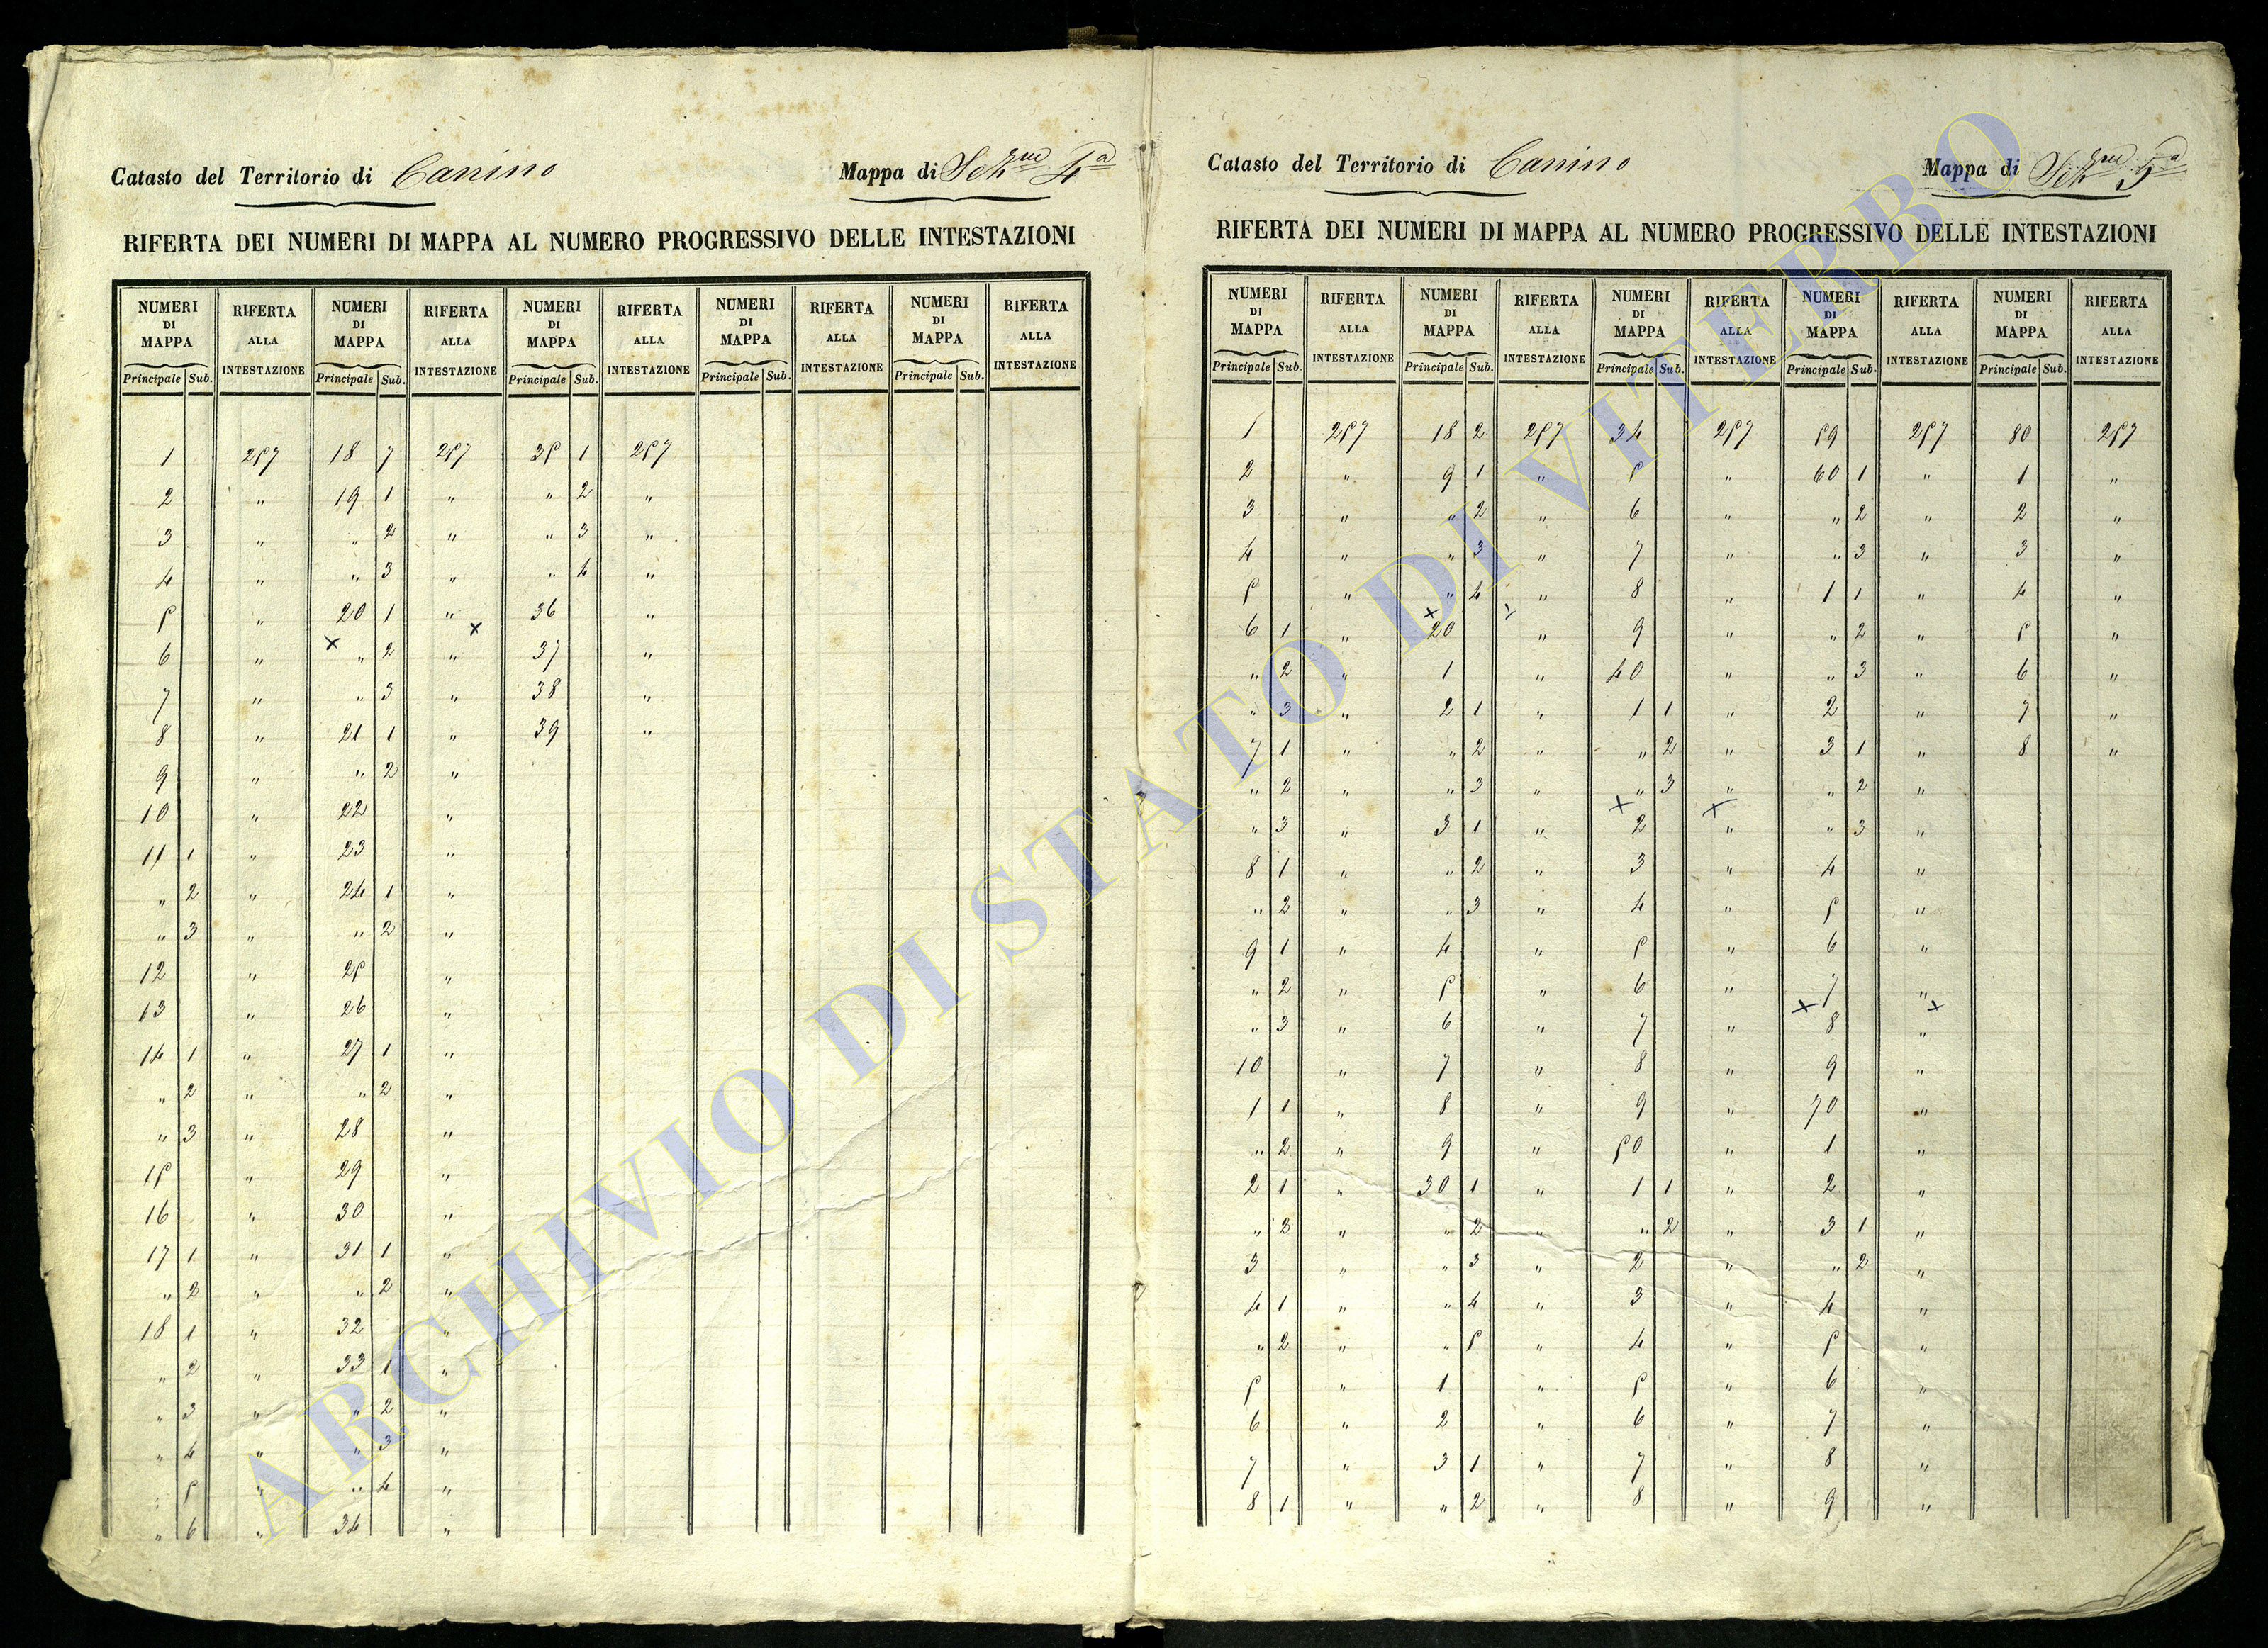 Catasto del Territorio di Canino Mappa di Sezne 4a
RIFERTA DEI NUMERI DI MAPPA AL NUMERO PROGRESSIVO DELLE INTESTAZIONI
NUMERI DI MAPPA RIFERTA ALLA INTESTAZIONE NUMERI DI MAPPA RIFERTA ALLA INTESTAZIONE NUMERI DI MAPPA RIFERTA ALLA INTESTAZIONE NUMERI DI MAPPA RIFERTA ALLA INTESTAZIONE NUMERI DI MAPPA RIFERTA ALLA INTESTAZIONE
Principale Sub. Principale Sub. Principale Sub. Principale Sub. Principale Sub.
1 257 18 7 257 35 1 257
2 " 19 1 " " 2 "
3 " " 2 " " 3 "
4 " " 3 " " 4 "
5 " 20 1 " x 36 "
6 " x " 2 " 37 "
7 " " 3 " 38 "
8 " 21 1 " 39 "
9 " " 2 "
10 " 22 "
11 1 " 23 "
" 2 " 24 1 "
" 3 " " 2 "
12 " 25 "
13 " 26 "
14 1 " 27 1 "
" 2 " " 2 "
" 3 " 28 "
15 " 29 "
16 " 30 "
17 1 " 31 1 "
" 2 " " 2 "
18 1 " 32 "
" 2 " 33 1 "
" 3 " " 2 "
" 4 " " 3 "
" 5 " " 4 "
" 6 " 34 "
Catasto del Territorio di Canino Mappa di Sezne 5a
RIFERTA DEI NUMERI DI MAPPA AL NUMERO PROGRESSIVO DELLE INTESTAZIONI
NUMERI DI MAPPA RIFERTA ALLA INTESTAZIONE NUMERI DI MAPPA RIFERTA ALLA INTESTAZIONE NUMERI DI MAPPA RIFERTA ALLA INTESTAZIONE NUMERI DI MAPPA RIFERTA ALLA INTESTAZIONE NUMERI DI MAPPA RIFERTA ALLA INTESTAZIONE
Principale Sub. Principale Sub. Principale Sub. Principale Sub. Principale Sub.
1 257 18 2 257 34 257 59 257 80 257
2 " 9 1 " 5 " 60 1 " 1 "
3 " " 2 " 6 " " 2 " 2 "
4 " " 3 " 7 " " 3 " 3 "
5 " " 4 " 8 " 1 1 " 4 "
6 1 " x 20 x " 9 " " 2 " 5 "
" 2 " 1 " 40 " " 3 " 6 "
" 3 " 2 1 " 1 1 " 2 " 7 "
7 1 " " 2 " " 2 " 3 1 " 8 "
" 2 " " 3 " " 3 " " 2 "
" 3 " 3 1 " x 2 x " " 3 "
8 1 " " 2 " 3 " 4 "
" 2 " " 3 " 4 " 5 "
9 1 " 4 " 5 " 6 "
" 2 " 5 " 6 " 7 "
" 3 " 6 " 7 " x 8 " x
10 " 7 " 8 " 9 "
1 1 " 8 " 9 " 70 "
" 2 " 9 " 50 " 1 "
2 1 " 30 1 " 1 1 " 2 "
" 2 " " 2 " " 2 " 3 1 "
3 " " 3 " 2 " " 2 "
4 1 " " 4 " 3 " 4 "
" 2 " " 5 " 4 " 5 "
5 " 1 " 5 " 6 "
6 " 2 " 6 " 7 "
7 " 3 1 " 7 " 8 "
8 1 " " 2 " 8 " 9 "
ARCHIVIO DI STATO DI VITERBO